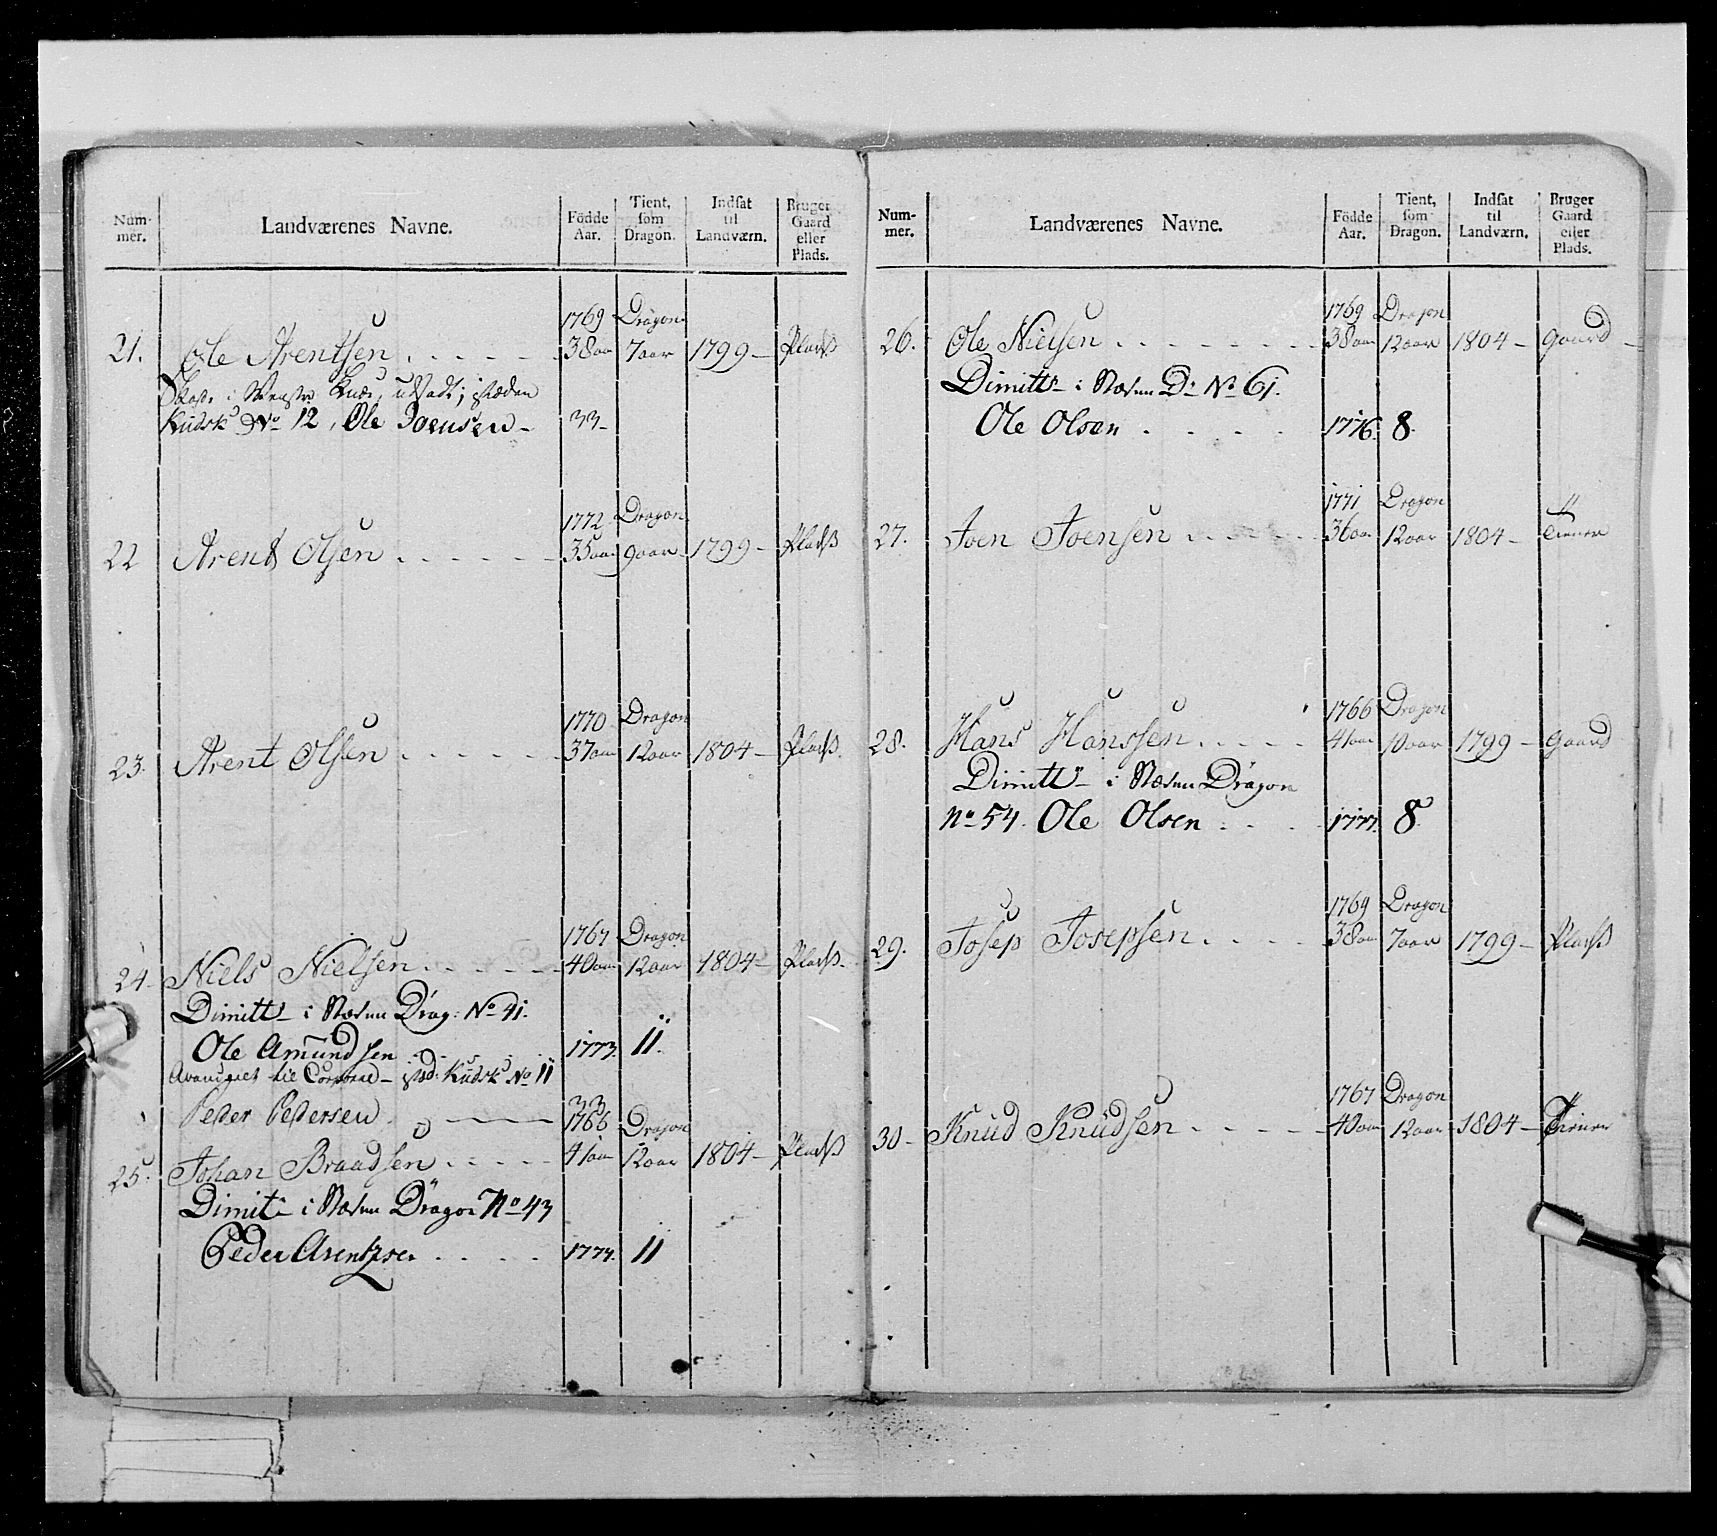 Num-
mer.
Landværenes Navne.
Födde
Aar.
Tient,
som
Dragon.
Indsat
til
Landværn.
Bruger
Gaard
eller
Plads.
1769 Dragon
21. Ole Arentsen 38 aar 7 aar 1799 Pladß
i Venstre Knæ, udsadt; isteden
Kudsk No 12, Ole Joensen 33
1772 Dragon
22 Arent Olsen 35 aar 9 aar 1799 Pladß
1770 Dragon
23. Arent Olsen 37 aar 12 aar 1804 Pladß
1767 Dragon
24 Niels Nielsen 40 aar 12 aar 1804 Pladß
Dimitt i Stæden Drag: No 41.
Ole Amundsen 1773. 11.
Avanceret til Corporal Kudsk No 11
Peder Pedersen 33
1766 Dragon
25. Johan Braadsen 41 aar 12 aar 1804 Pladß
Dimit i Stæden Dragon No 43
Peder Arentzsen 1774. 11
Num-
mer.
Landværenes Navne.
Födde
Aar.
Tient,
som
Dragon.
Indsat
til
Landværn.
Bruger
Gaard
eller
Plads.
1769 Dragon
26. Ole Nielsen 38 aar 12 aar 1804 Gaard
Dimitt i Stæden Dr No 61.
Ole Olsen 1776. 8.
1771 Dragon
27. Joen Joensen 36 aar 12 aar 1804 Tiener
1766 Dragon
28. Hans Hanssen 41 aar 10 aar 1799 Gaard
Dimitt i Stæden Dragon
No 54. Ole Olsen 1777. 8.
1769 Dragon
29. Josep Josepsen 38 aar 7 aar 1799 Pladß
1767 Dragon
30 Knud Knudsen 40 aar 12 aar 1804 Tiener